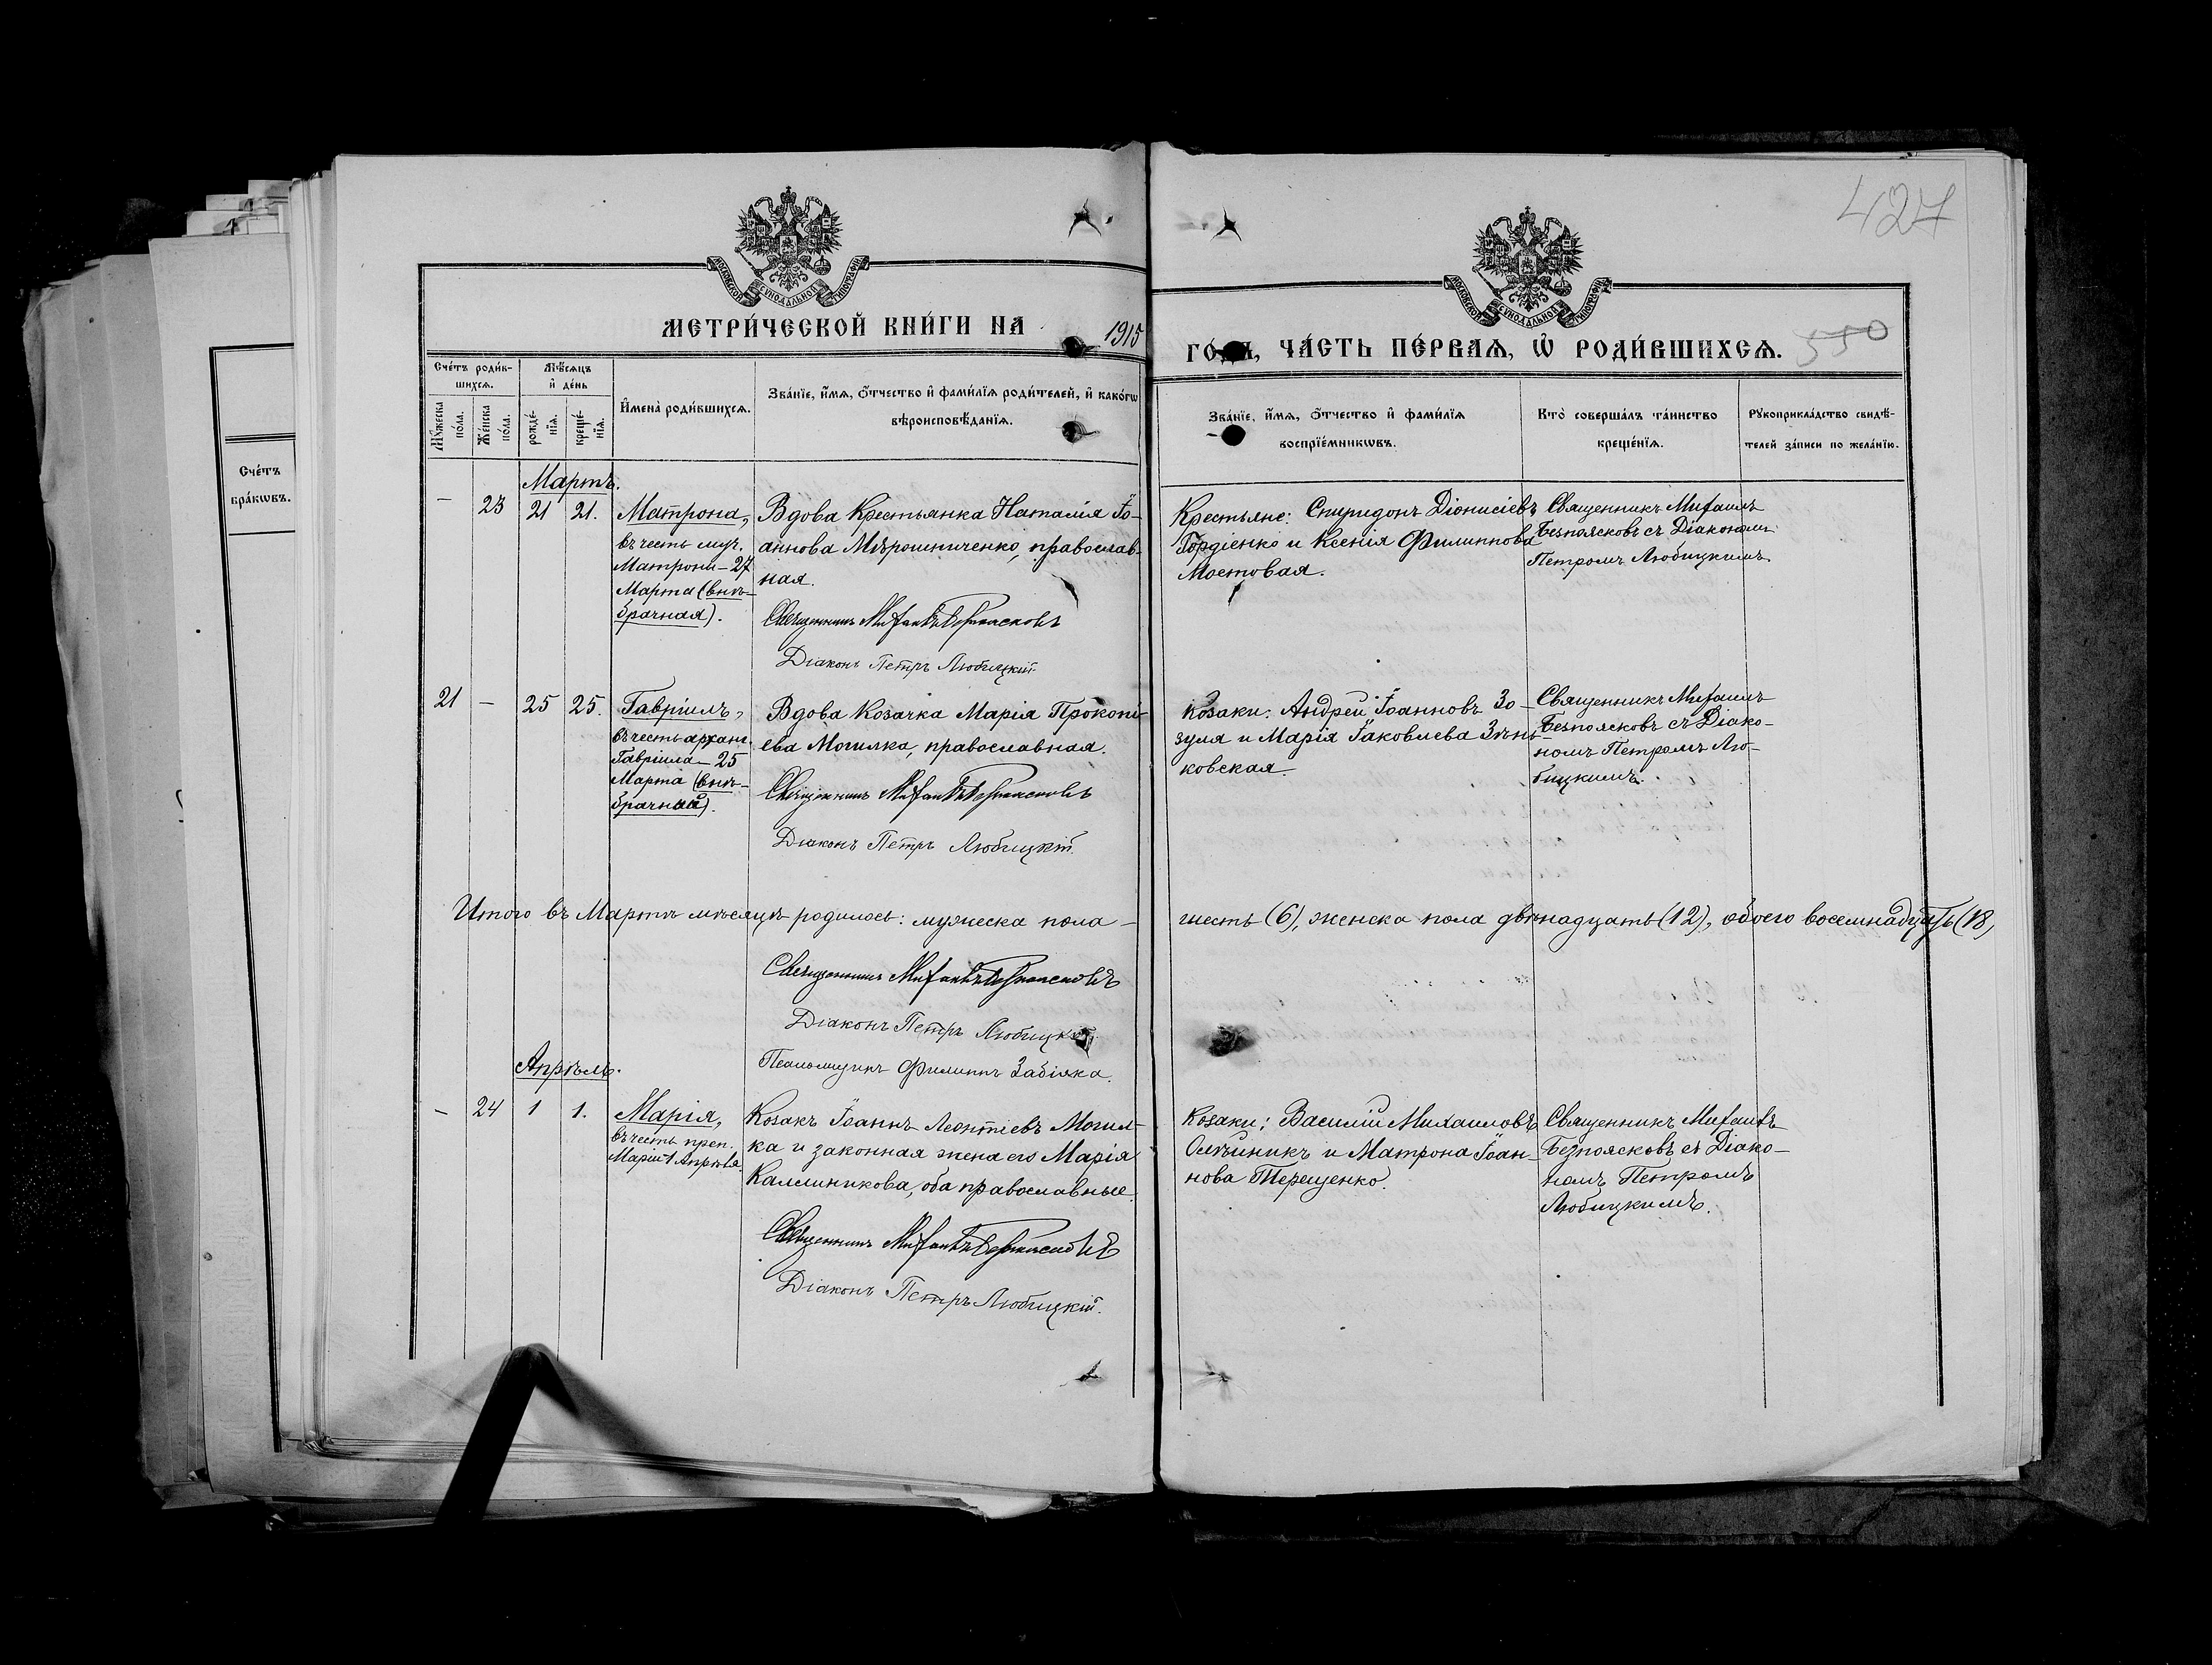 427
МОСКОВСКОЙ СѴНОДАЛЬНОЙ ТИПОГРАФІИ
МОСКОВСКОЙ СѴНОДАЛЬНОЙ ТИПОГРАФІИ
МЕТРИ́ЧЕСКОЙ КНИ́ГИ НА 1915
ГО́ДА, ЧА́СТЬ ПЕ́РВАѦ, Ѡ РОДИ́ВШИХСѦ.
550
Сче́тъ
бра́кѡвъ.
Сче́тъ роди́в-
шихсѧ.
Мѣ́сѧцъ
и҆ де́нь
Мꙋ́жеска
по́ла.
Же́нска
по́ла.
рожде́-
нїѧ.
креще́-
нїѧ.
И҆мена̀ роди́вшихсѧ.
Зва́нїе, и҆́мѧ, ѻ҆́тчество и҆ фами́лїѧ роди́телей, и҆ како́гѡ
вѣроисповѣ́данїѧ.
Зва́нїе, и҆́мѧ, ѻ҆́тчество и҆ фами́лїѧ
воспрїе́мникѡвъ.
Кто̀ соверша́лъ та́инство
креще́нїѧ.
Рꙋкоприкла́дство свидѣ́-
телей за́писи по жела́нїю.
Мартъ.
— 23 21 21.
Матрона,
въ честь муч.
Матроны – 27
Марта (внѣ-
брачная).
Вдова Крестьянка Наталія Іо-
аннова Мѣрошниченко, православ-
ная.
Священникъ Михаилъ Безпоясковъ
Діаконъ Петръ Любицкій
Крестьяне: Спиридонъ Діонисіевъ
Гордіенко и Ксенія Филиппова
Мостовая.
Священникъ Михаилъ
Безпоясковъ съ Діакономъ
Петромъ Любицкимъ
21 — 25 25.
Гавріилъ,
въ честь арханг.
Гавріила – 25
Марта (внѣ-
брачный).
Вдова Козачка Марія Прокопі-
ева Могилка, православная.
Священникъ Михаилъ Безпоясковъ
Діаконъ Петръ Любицкій.
Козаки: Андрей Іоанновъ Зо-
зуля и Марія Іаковлева Знь-
ковская.
Священникъ Михаилъ
Безпоясковъ съ Діако-
номъ Петромъ Лю-
бицкимъ.
Итого въ Мартѣ мѣсяцѣ родилось: мужеска пола – шесть (6), женска пола двѣнадцать (12), обоего восемнадцать (18,
Священникъ Михаилъ Безпоясковъ
Діаконъ Петръ Любицкій
Псаломщикъ Филиппъ Забіяка.
Апрѣль.
— 24 1 1.
Марія,
въ честь преп.
Маріи 1 Апрѣля.
Козакъ Іоаннъ Леонтіевъ Могил-
ка и законная жена его Марія
Каллиникова, оба православные.
Священникъ Михаилъ Безпоясковъ
Діаконъ Петръ Любицкій.
Козаки: Василій Михаиловъ
Олѣйникъ и Матрона Іоан-
нова Терещенко.
Священникъ Михаилъ
Безпоясковъ съ Діако-
номъ Петромъ
Любицкимъ.